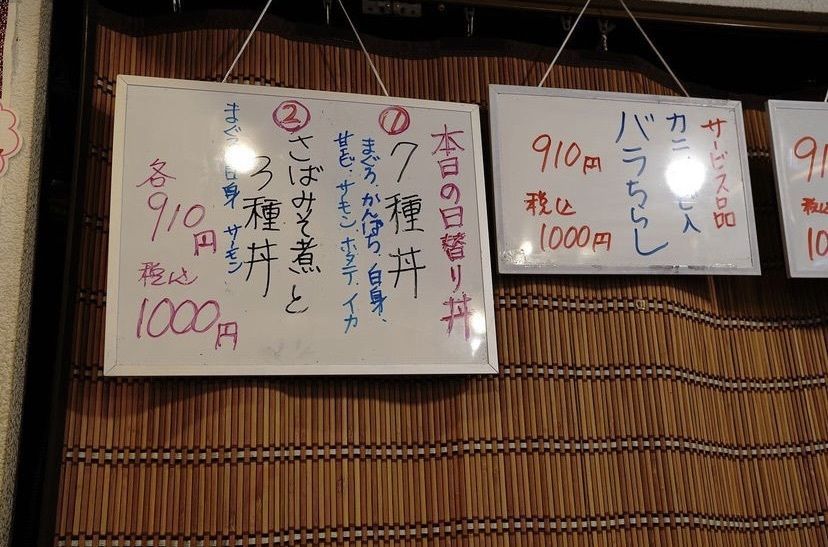 本日の日替り丼
① 7種丼
まぐろ、かんぱち、白身、
甘エビ・サーモン ホタテ、イカ
② さばみそ煮と
3種丼
白身 サーモン
各
910円
税込
1000円
サービス品
カニ
入
バラちらし
910円
税込
1000円
税込